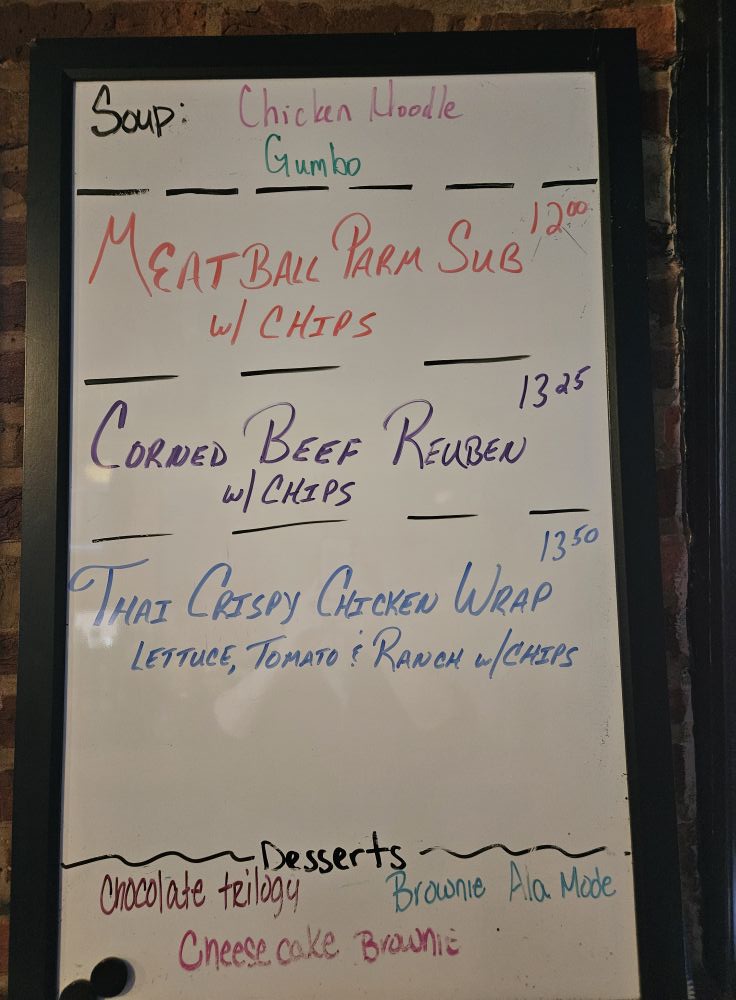 Soup: Chicken Noodle
Gumbo
MEATBALL PARM SUB 12.00
w/ CHIPS
13.25
CORNED BEEF REUBEN
w/ CHIPS
13.50
THAI CRISPY CHICKEN WRAP
LETTUCE, TOMATO & RANCH w/CHIPS
Desserts
Chocolate trilogy Brownie Ala Mode
Cheesecake Brownie